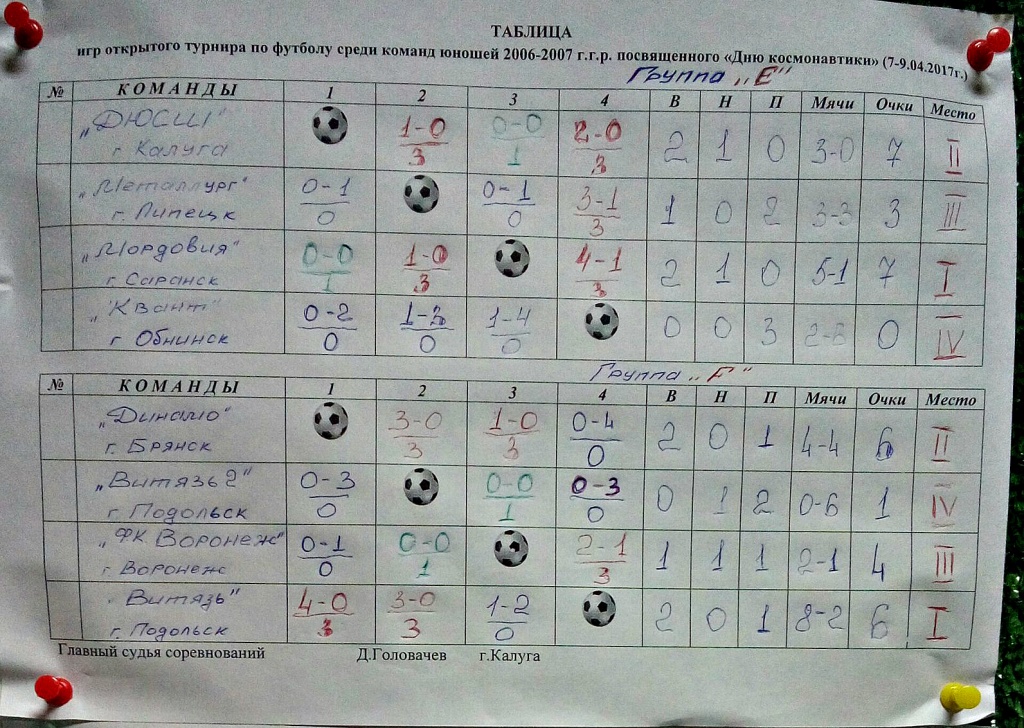 ТАБЛИЦА
игр открытого турнира по футболу среди команд юношей 2006-2007 г.г.р. посвященного «Дню космонавтики» (7-9.04.2017г.)
Группа „Е"
№ КОМАНДЫ 1 2 3 4 В Н П Мячи Очки Место
„ДЮСШ" 1-0 0-0 2-0 2 1 0 3-0 7 II
г. Калуга 3 1 3
„Металлург" 0-1 0-1 3-1 1 0 2 3-3 3 III
г. Липецк 0 0 3
„Мордовия" 0-0 1-0 4-1 2 1 0 5-1 7 I
г. Саранск 1 3 3
„Квант" 0-2 1-3 1-4 0 0 3 0 IV
г. Обнинск 0 0 0
Группа „F"
№ КОМАНДЫ 1 2 3 4 В Н П Мячи Очки Место
„Динамо" 3-0 1-0 0-4 2 0 1 4-4 6 II
г. Брянск 3 3 0
„Витязь 2" 0-3 0-0 0-3 0 1 2 0-6 1 IV
г. Подольск 0 1 0
„ФК Воронеж" 0-1 0-0 2-1 1 1 1 2-1 4 III
г. Воронеж 0 1 3
„Витязь" 4-0 3-0 1-2 2 0 1 8-2 6 I
г. Подольск 3 3 0
Главный судья соревнований Д.Головачев г.Калуга